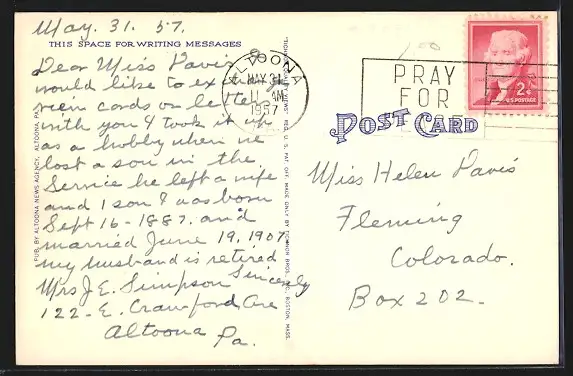 May. 31. 57.
THIS SPACE FOR WRITING MESSAGES
Dear Miss Davis
would like to exchange
view cards or letters
with you I took it up
as a hobby when we
lost a son in the
Service he left a wife
and 1 son I was born
Sept 16-1887. and
married June 19, 1907
my husband is retired
Sincerely
Mrs J. E. Simpson
122-E. Crawford Ave
Altoona
Pa.
PUB. BY ALTOONA NEWS AGENCY, ALTOONA, PA.
REG. U. S. PAT. OFF. MADE ONLY BY TICHNOR BROS., INC., BOSTON, MASS.
ALTOONA
MAY 31
11 AM
1957
PRAY
FOR
2¢
U.S. POSTAGE
POST CARD
Miss Helen Davis
Fleming
Colorado.
Box 202-